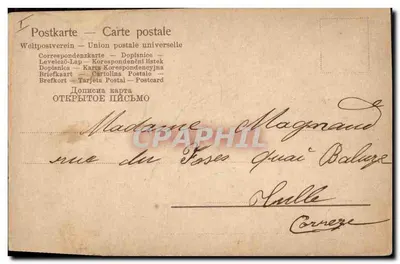 I
Postkarte — Carte postale
Weltpostverein — Union postale universelle
Correspondenzkarte — Dopisnice —
Levelező-Lap — Korespondenční lístek
Dopisnica — Karta Korespondencyjna
Briefkaart — Cartolina Postale —
Brefkort — Tarjeta Postal — Postcard
Дописна карта
ОТКРЫТОЕ ПИСЬМО
Madame Magnaud
CPAPHIL
rue du Foses quai Baluze
Tulle
Correze